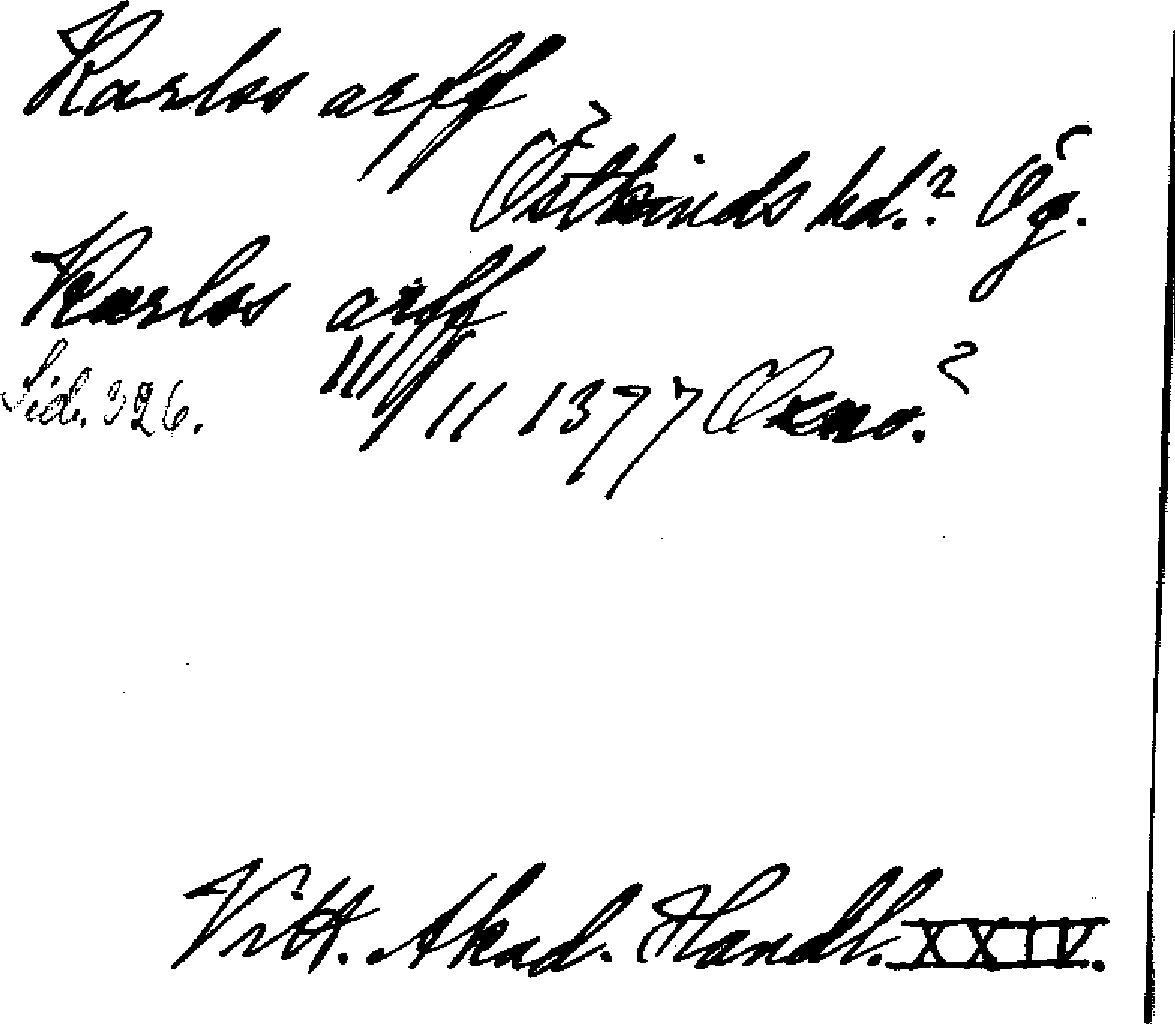 Karlss arff
Östkinds hd.? Ög.
Karlss arff
Sid. 326. 11/11 1377 Oxno.?
Vitt. Akad. Handl. XXIV.